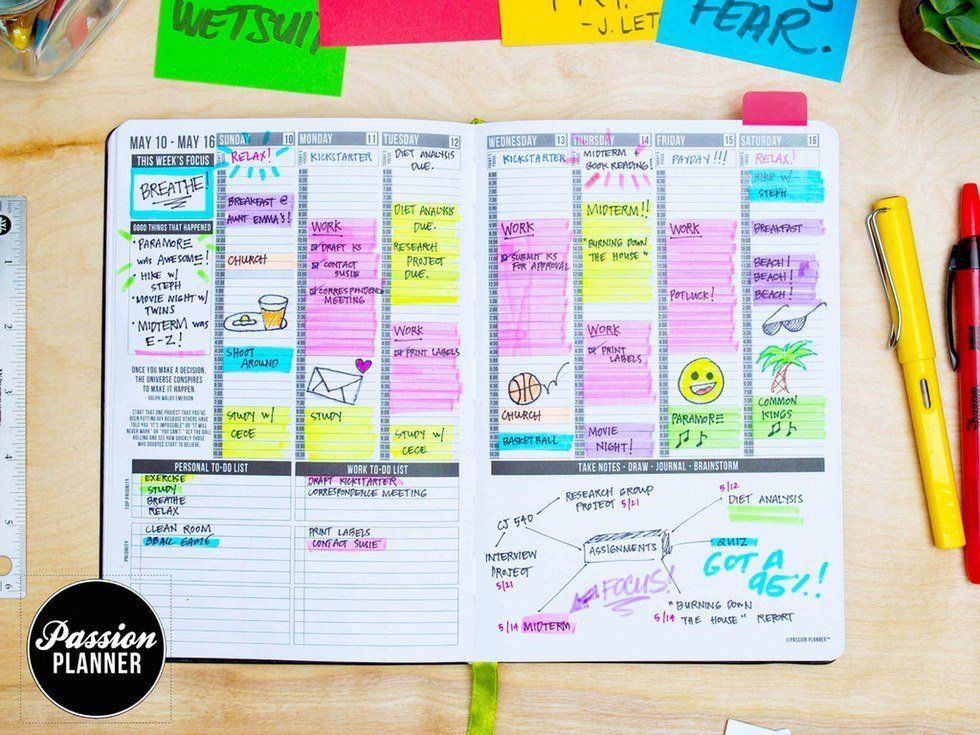 WETSUIT
- J. LET
FEAR.
MAY 10 - MAY 16
THIS WEEK'S FOCUS
BREATHE!
GOOD THINGS THAT HAPPENED
• PARAMORE
was AWESOME!
• HIKE w/
STEPH
• MOVIE NIGHT w/
TWINS
• MIDTERM was
E-Z!
ONCE YOU MAKE A DECISION,
THE UNIVERSE CONSPIRES
TO MAKE IT HAPPEN.
- RALPH WALDO EMERSON
START THAT ONE PROJECT THAT YOU'VE
BEEN PUTTING OFF BECAUSE OTHERS HAVE
TOLD YOU "IT'S IMPOSSIBLE" OR "IT WILL
NEVER WORK" OR "YOU CAN'T." GET THE BALL
ROLLING AND SEE HOW QUICKLY THOSE
WHO DOUBTED START TO BELIEVE.
SUNDAY 10
RELAX!
BREAKFAST @
AUNT EMMA'S!
CHURCH
SHOOT
AROUND
STUDY w/
CECE
MONDAY 11
KICKSTARTER
WORK
DRAFT KS
CONTACT
SUSIE
CORRESPONDENCE
MEETING
STUDY
TUESDAY 12
DIET ANALYSIS
DUE.
DIET ANALYSIS
DUE.
RESEARCH
PROJECT
DUE.
WORK
PRINT LABELS
STUDY w/
CECE
WEDNESDAY 13
KICKSTARTER
WORK
SUBMIT KS
FOR APPROVAL
CHURCH
BASKETBALL
THURSDAY 14
MIDTERM +
BOOK READING!
MIDTERM!!
"BURNING DOWN
THE HOUSE"
WORK
PRINT
LABELS
MOVIE
NIGHT!
FRIDAY 15
PAYDAY!!!
WORK
POTLUCK!
PARAMORE
SATURDAY 16
RELAX!
HIKE w/
STEPH
BREAKFAST
BEACH!
BEACH!
BEACH!
COMMON
KINGS
PERSONAL TO-DO LIST
TOP PRIORITY
EXERCISE
STUDY
BREATHE
RELAX
PRIORITY
CLEAN ROOM
BBALL GAME
WORK TO-DO LIST
DRAFT KICKSTARTER
CORRESPONDENCE MEETING
PRINT LABELS
CONTACT SUSIE
TAKE NOTES - DRAW - JOURNAL - BRAINSTORM
RESEARCH GROUP
PROJECT 5/21
CJ 540
INTERVIEW
PROJECT
5/21
ASSIGNMENTS
5/12
DIET ANALYSIS
QUIZ
GOT A
95%!
FOCUS!
5/14 MIDTERM
"BURNING DOWN
5/14 THE HOUSE" REPORT
©PASSION PLANNER™
Passion
PLANNER